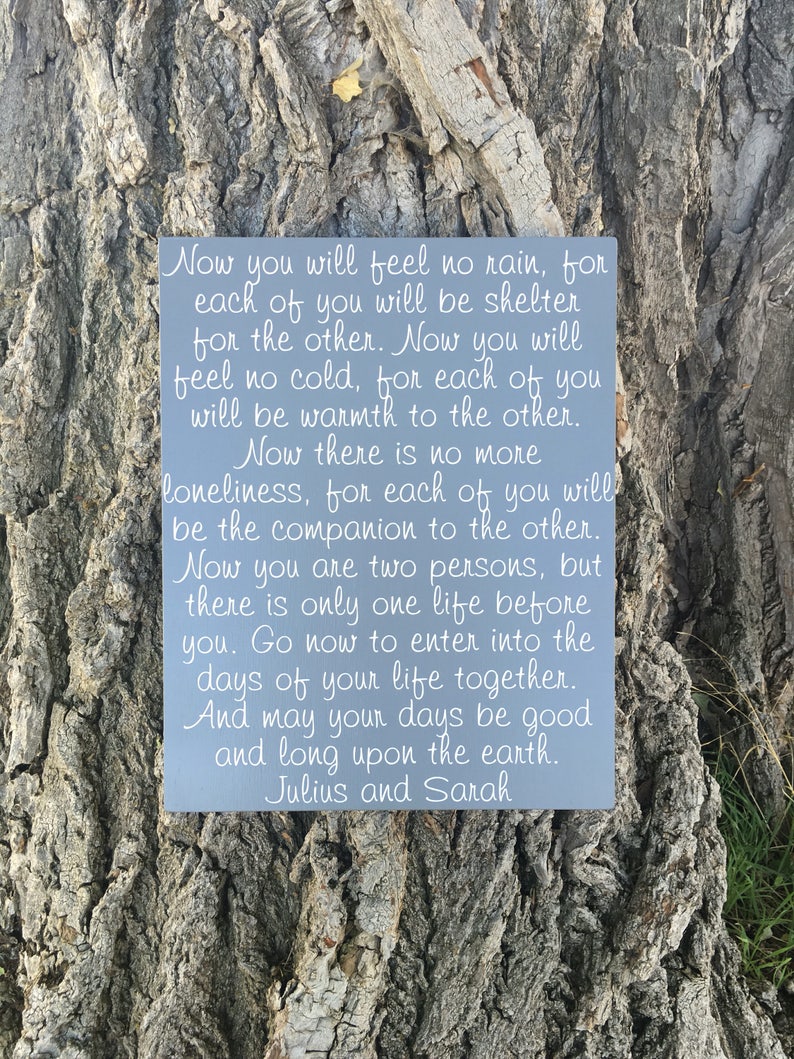 Now you will feel no rain, for
each of you will be shelter
for the other. Now you will
feel no cold, for each of you
will be warmth to the other.
Now there is no more
loneliness, for each of you will
be the companion to the other.
Now you are two persons, but
there is only one life before
you. Go now to enter into the
days of your life together.
And may your days be good
and long upon the earth.
Julius and Sarah